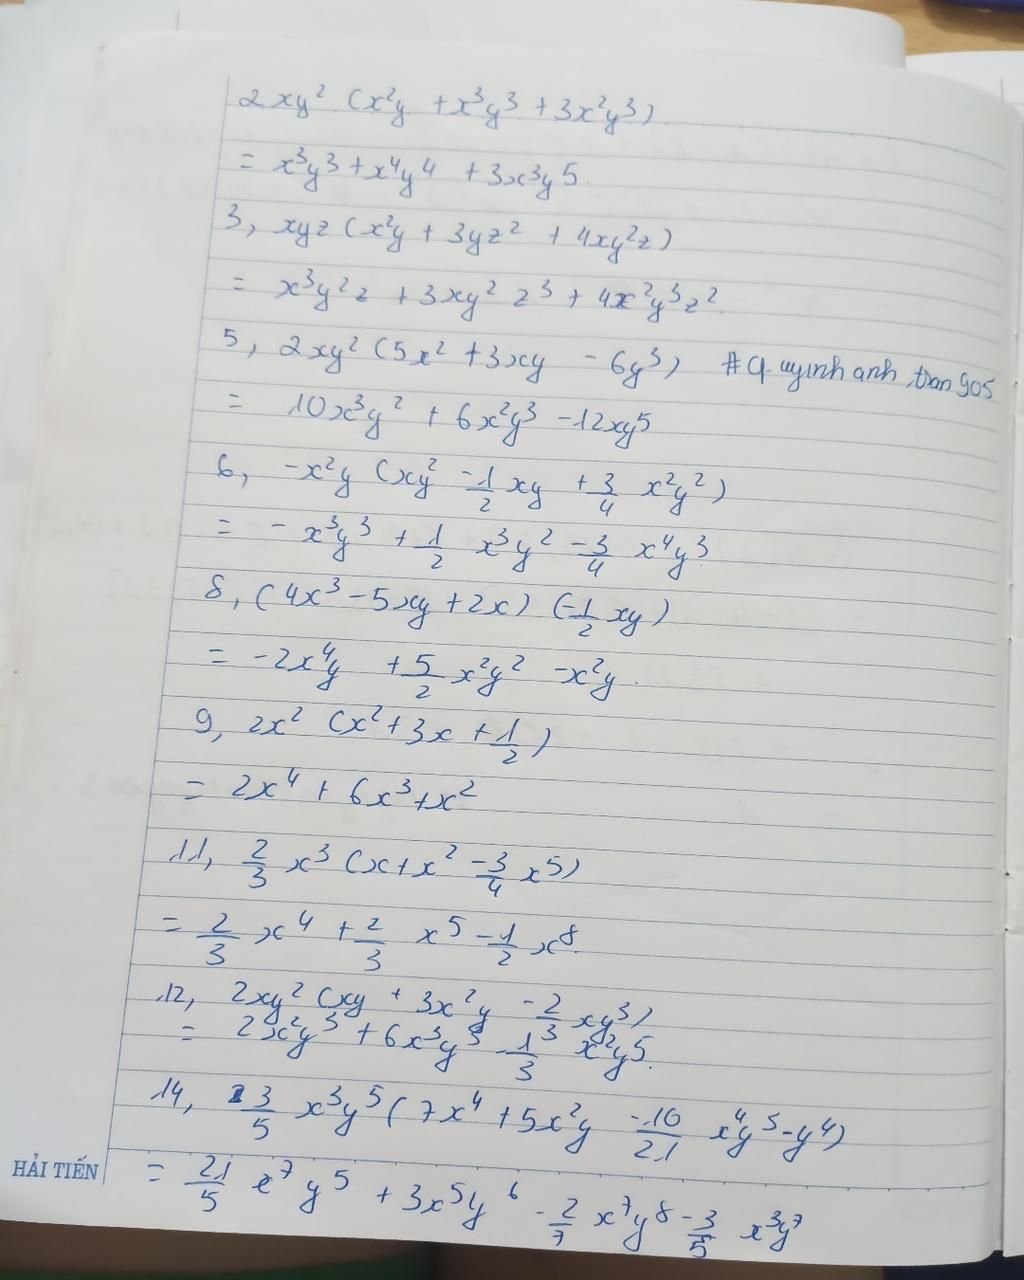 2 xy² (x²y + x³y³ + 3x²y³)
= x³y³ + x⁴y⁴ + 3x³y5.
3, xyz (x²y + 3yz² + 4xy²z)
= x³y²z + 3xy² z³ + 4x²y³z².
5, 2xy² (5x² + 3xy - 6y³) #q.uynh anh tran 905
= 10x³y² + 6x²y³ - 12xy⁵
6, -x²y (xy² - 1/2 xy + 3/4 x²y²)
= - x³y³ + 1/2 x³y² - 3/4 x⁴y³
8, (4x³ - 5xy + 2x) (-1/2 xy)
= -2x⁴y + 5/2 x²y² - x²y.
9, 2x² (x² + 3x + 1/2)
= 2x⁴ + 6x³ + x²
11, 2/3 x³ (x + x² - 3/4 x⁵)
= 2/3 x⁴ + 2/3 x⁵ - 1/2 x⁸.
12, 2xy² (xy + 3x²y - 2/3 xy³)
= 2x²y³ + 6x³y³ - 1/3 x²y⁵.
14, 3/5 x³y⁵ (7x⁴ + 5x²y - 10/21 x⁴y³ - y⁴)
= 21/5 x⁷ y⁵ + 3x⁵y⁶ - 2/7 x⁷y⁸ - 3/5 x³y⁷
HẢI TIẾN